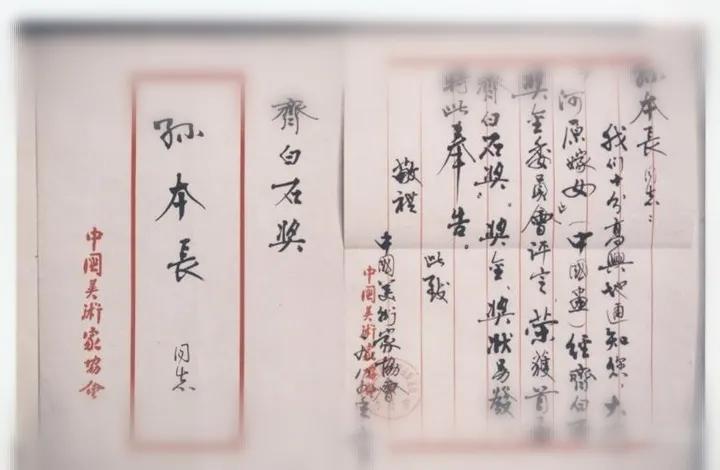 孙本長同志：
我们十分高興地通知您，大
河原嫁女”（中國畫）經齊白石
奖金委員會評定，榮獲首
齊白石奖。奖金、奖狀另發
特此奉告。
此致
敬禮
中國美術家協會
中國美術家協會
齊白石奖
孙本長 同志
中國美術家協會